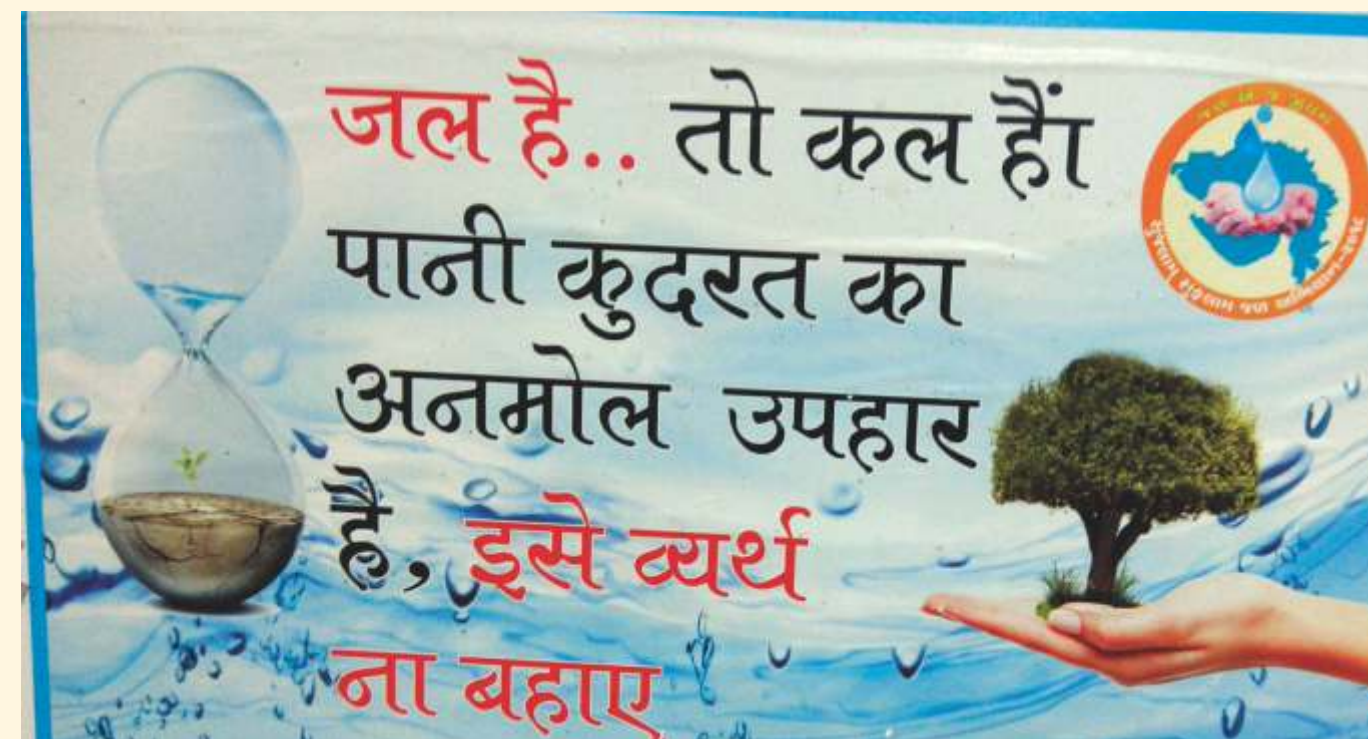 जल है.. तो कल हैं।
पानी कुदरत का
अनमोल उपहार
है, इसे व्यर्थ
ना बहाए